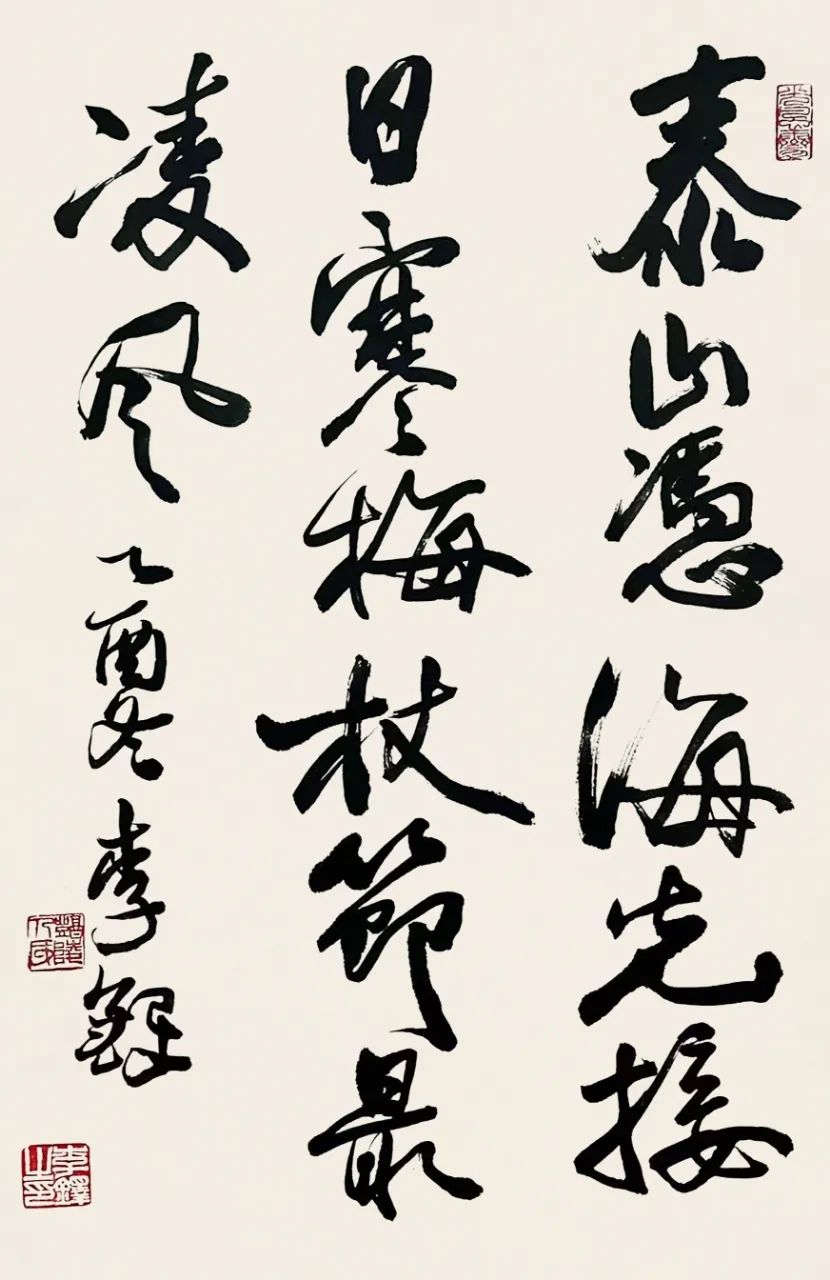 泰山憑海先接
日寒梅杖節最
凌风
乙酉冬李鐸
李鐸之印